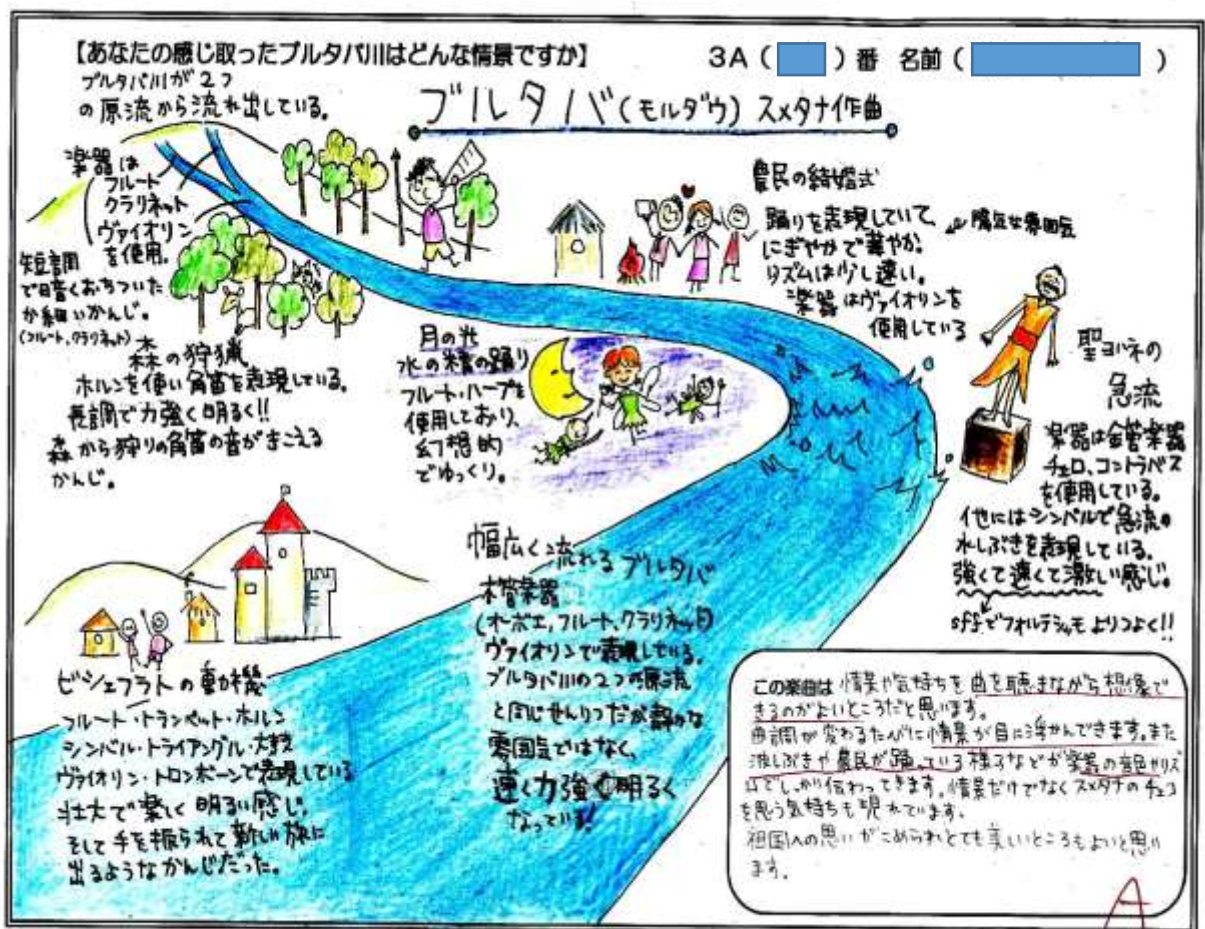 【あなたの感じ取ったブルタバ川はどんな情景ですか】
3A ( ) 番 名前 ( )
ブルタバ川が2つ
の原流から流れ出している。
ブルタバ(モルダウ) スメタナ作曲
楽器は
フルート
クラリネット
ヴァイオリン
を使用。
短調
で暗くおちついた
か細いかんじ。
(フルート、クラリネット)
森の狩猟
ホルンを使い角笛を表現している。
長調で力強く明るく!!
森から狩りの角笛の音がきこえる
かんじ。
農民の結婚式
踊りを表現していて、
にぎやかで華やか。
陽気な雰囲気
リズムは少し速い。
楽器はヴァイオリンを
使用している
月の光
水の精の踊り
フルート・ハープを
使用しており、
幻想的
でゆっくり。
聖ヨハネの
急流
楽器は金管楽器
チェロ、コントラバス
を使用している。
他にはシンバルで急流の
水しぶきを表現している。
強くて速くて激しい感じ。
sffでフォルテシッモよりつよく!!
幅広く流れるブルタバ
木管楽器
(オーボエ,フルート、クラリネット)
ヴァイオリンで表現している。
ブルタバ川の2つの原流
と同じせんりつだが静かな
雰囲気ではなく、
速く力強く明るく
なっている!
ビシェフラトの動機
フルート・トランペット・ホルン
シンバル・トライアングル・大太こ
ヴァイオリン・トロンボーンで表現している
壮大で楽しく明るい感じ。
そして手を振られて新しい旅に
出るようなかんじだった。
この楽曲は 情景や気持ちを曲を聴きながら想像で
きるのがよいところだと思います。
曲調が変わるたびに情景が目に浮かんできます。また
波しぶきや農民が踊っている様子などが楽器の音色やリズ
ムでしっかり伝わってきます。情景だけでなくスメタナのチェコ
を思う気持ちも現れています。
祖国への思いがこめられとても美しいところもよいと思い
ます。
A